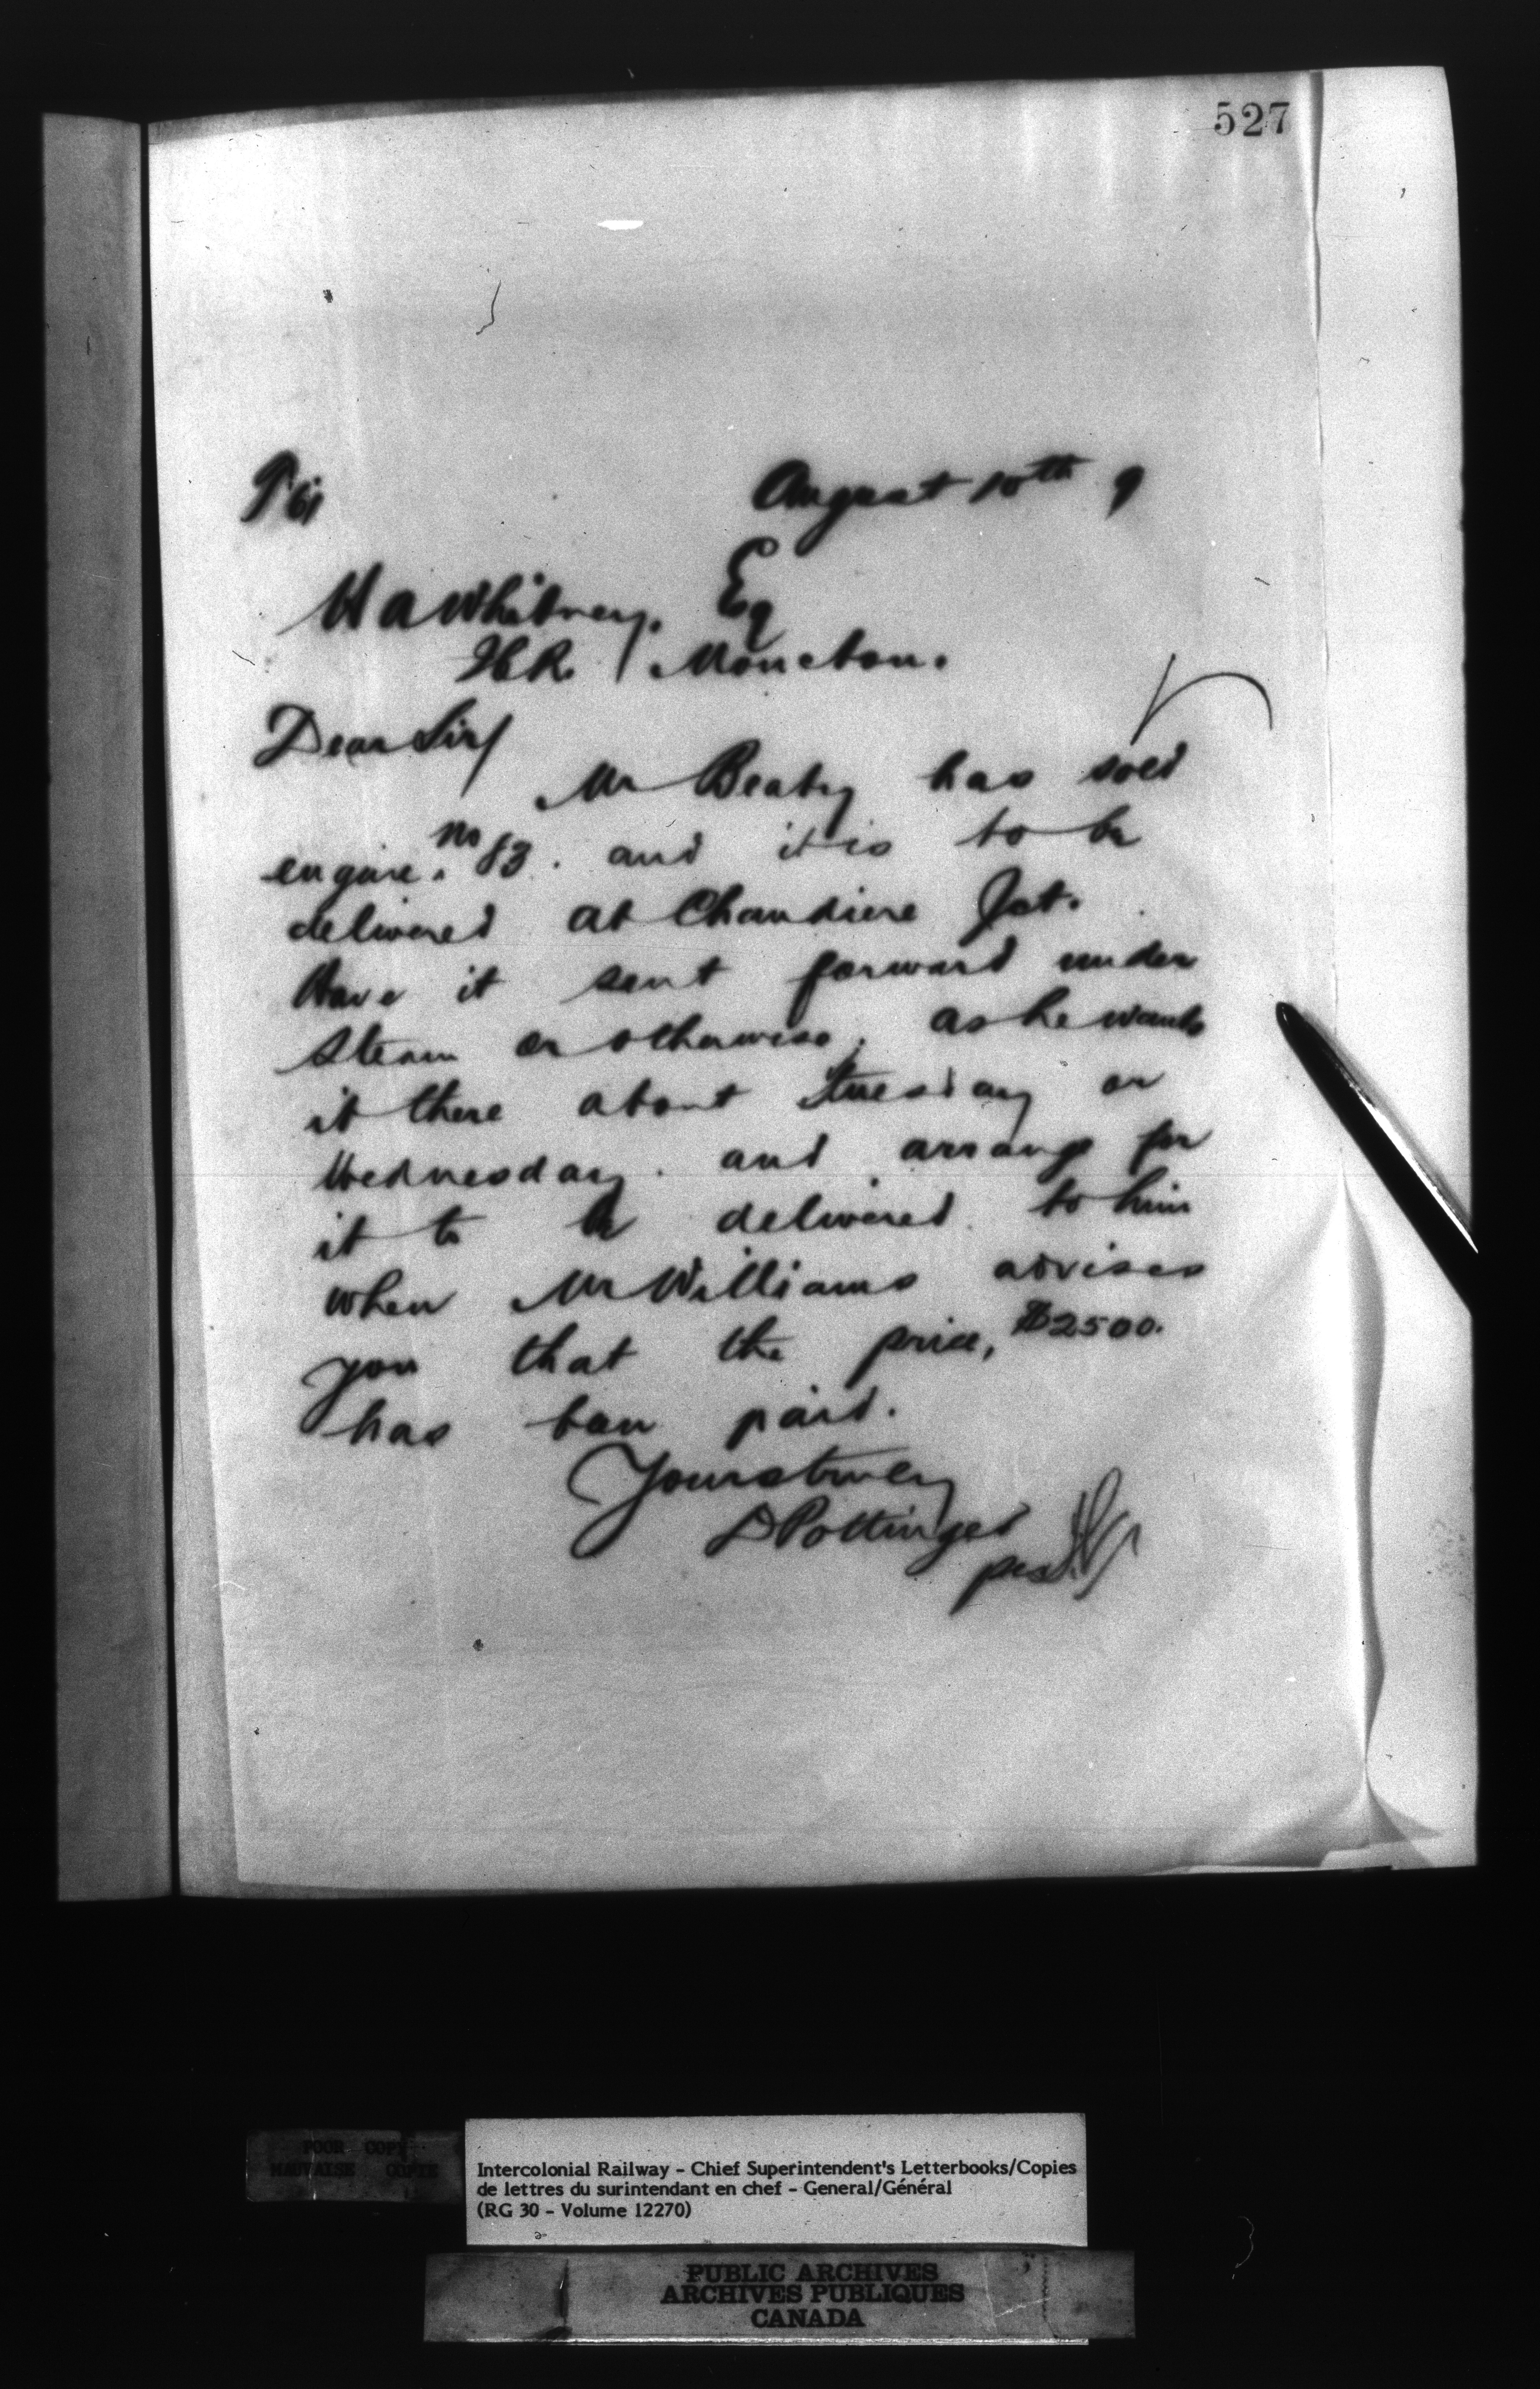 527
August 10th 9
H A Whitney. Eq
ICR / Moncton.
Dear Sir/
Mr Beaty has sold
engine. No 83. and it is to be
delivered at Chaudiere Jct.
Have it sent forward under
steam or otherwise, as he wants
it there about Tuesday or
Wednesday. and arrange for
it to be delivered to him
when Mr Williams advises
you that the price, $2500.
has been paid.
Yours truly
D Pottinger
per
POOR COPY
MAUVAISE COPIE
Intercolonial Railway – Chief Superintendent's Letterbooks/Copies
de lettres du surintendant en chef – General/Général
(RG 30 – Volume 12270)
PUBLIC ARCHIVES
ARCHIVES PUBLIQUES
CANADA